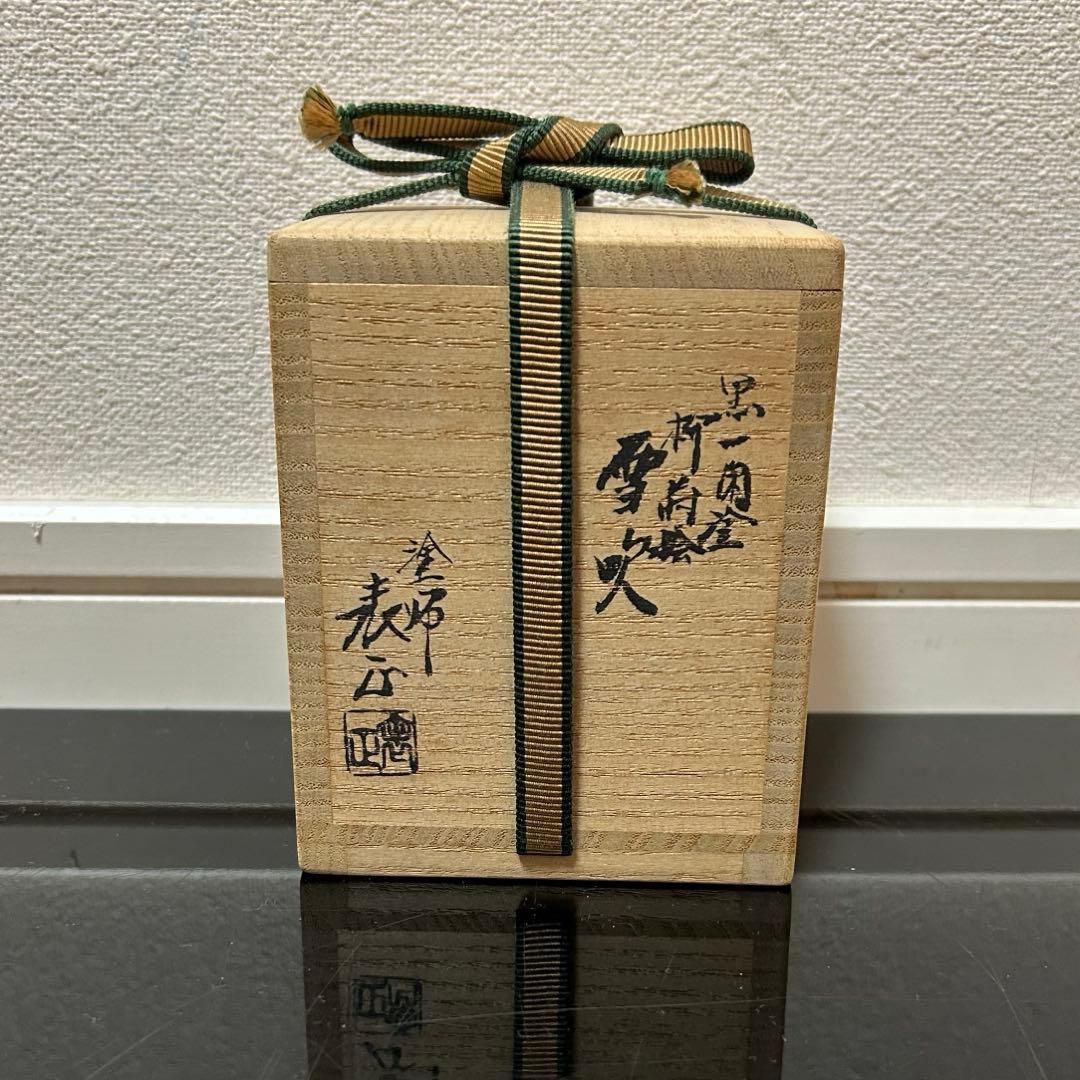 黒一閑塗
柳蒔絵
雪吹
塗師
表正
表正